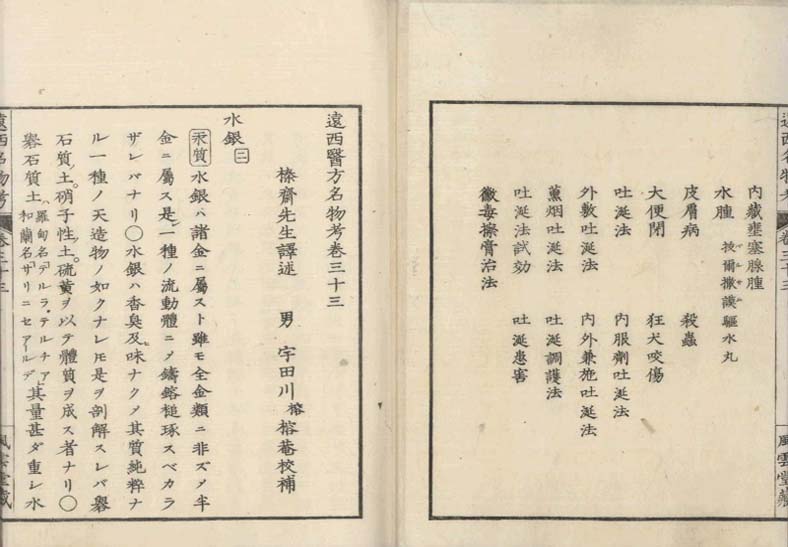 内藏壅塞腺腫
水腫 披爾撒謨驅水丸
皮膚病 殺蟲
大便閉 狂犬咬傷
吐涎法 内服劑吐涎法
外敷吐涎法 内外兼施吐涎法
薫烟吐涎法 吐涎調護法
吐涎法試効 吐涎患害
黴毒擦膏治法
遠西醫方名物考卷三十三
榛齋先生譯述 男 宇田川榕榕菴校補
水銀 二
汞質 水銀ハ諸金ニ屬スト雖モ全金類ニ非ズメ半
金ニ屬ス是一種ノ流動體ニメ鑄鎔槌琢スベカラ
ザレバナリ〇水銀ハ香臭及味ナクメ其質純粹ナ
ル一種ノ天造物ノ如クナレ𪜈是ヲ剖解スレバ礜
石質土。硝子性土。硫黄ヲ以テ體質ヲ成ス者ナリ〇
礜石質土 羅甸名「テルラ・テルチア」和蘭名「ザリニセアールデ」其量甚ダ重シ水
遠西名物考 卷三十三 風雲堂藏